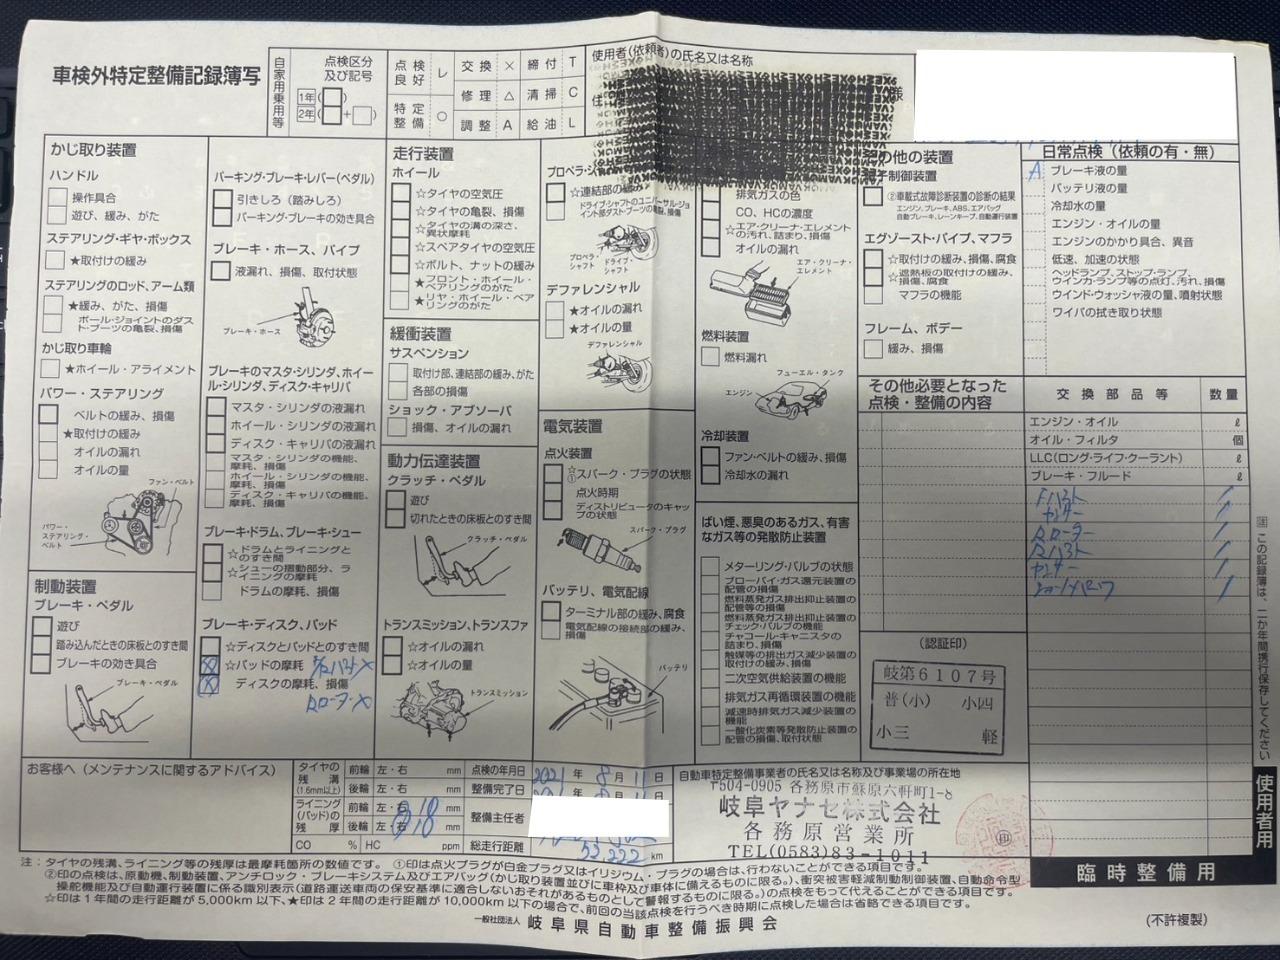 車検外特定整備記録簿写
自家用乗用等
点検区分及び記号
1年( )
2年( + )
点検良好 レ
交換 ×
締付 T
特定整備 ○
修理 △
清掃 C
調整 A
給油 L
使用者(依頼者)の氏名又は名称
住
様
かじ取り装置
ハンドル
操作具合
遊び、緩み、がた
ステアリング・ギヤ・ボックス
★取付けの緩み
ステアリングのロッド、アーム類
★緩み、がた、損傷
ボール・ジョイントのダスト・ブーツの亀裂、損傷
かじ取り車輪
★ホイール・アライメント
パワー・ステアリング
ベルトの緩み、損傷
★取付けの緩み
オイルの漏れ
オイルの量
ファン・ベルト
パワー・ステアリング・ベルト
制動装置
ブレーキ・ペダル
遊び
踏み込んだときの床板とのすき間
ブレーキの効き具合
ブレーキ・ペダル
パーキング・ブレーキ・レバー(ペダル)
引きしろ(踏みしろ)
パーキング・ブレーキの効き具合
ブレーキ・ホース、パイプ
液漏れ、損傷、取付状態
ブレーキ・ホース
ブレーキのマスタ・シリンダ、ホイール・シリンダ、ディスク・キャリパ
マスタ・シリンダの液漏れ
ホイール・シリンダの液漏れ
ディスク・キャリパの液漏れ
マスタ・シリンダの機能、摩耗、損傷
ホイール・シリンダの機能、摩耗、損傷
ディスク・キャリパの機能、摩耗、損傷
ブレーキ・ドラム、ブレーキ・シュー
☆ドラムとライニングとのすき間
☆シューの摺動部分、ライニングの摩耗
ドラムの摩耗、損傷
ブレーキ・ディスク、パッド
☆ディスクとパッドとのすき間
☆パッドの摩耗
ディスクの摩耗、損傷
走行装置
ホイール
☆タイヤの空気圧
☆タイヤの亀裂、損傷
☆タイヤの溝の深さ、異状摩耗
☆スペアタイヤの空気圧
☆ボルト、ナットの緩み
★フロント・ホイール・ベアリングのがた
★リヤ・ホイール・ベアリングのがた
緩衝装置
サスペンション
取付け部、連結部の緩み、がた
各部の損傷
ショック・アブソーバ
損傷、オイルの漏れ
動力伝達装置
クラッチ・ペダル
遊び
切れたときの床板とのすき間
クラッチ・ペダル
トランスミッション、トランスファ
☆オイルの漏れ
☆オイルの量
トランスミッション
☆連結部の緩み
ドライブ・シャフトのユニバーサル・ジョイント部ダスト・ブーツの亀裂、損傷
プロペラ・シャフト
ドライブ・シャフト
デファレンシャル
★オイルの漏れ
★オイルの量
デファレンシャル
電気装置
点火装置
☆①スパーク・プラグの状態
点火時期
ディストリビュータのキャップの状態
スパーク・プラグ
バッテリ、電気配線
ターミナル部の緩み、腐食
電気配線の接続部の緩み、損傷
バッテリ
排気ガスの色
CO、HCの濃度
☆エア・クリーナ・エレメントの汚れ、詰まり、損傷
オイルの漏れ
エア・クリーナ・エレメント
燃料装置
燃料漏れ
フューエル・タンク
エンジン
冷却装置
ファン・ベルトの緩み、損傷
冷却水の漏れ
ばい煙、悪臭のあるガス、有害なガス等の発散防止装置
メターリング・バルブの状態
ブローバイ・ガス還元装置の配管の損傷
燃料蒸発ガス排出抑止装置の配管等の損傷
燃料蒸発ガス排出抑止装置のチェック・バルブの機能
チャコール・キャニスタの詰まり、損傷
触媒等の排出ガス減少装置の取付けの緩み、損傷
二次空気供給装置の機能
排気ガス再循環装置の機能
減速時排気ガス減少装置の機能
一酸化炭素等発散防止装置の配管の損傷、取付状態
の他の装置
子制御装置
②車載式故障診断装置の診断の結果
エンジン、ブレーキ、ABS、エアバッグ
自動ブレーキ、レーンキープ、自動運行装置
エグゾースト・パイプ、マフラ
☆取付けの緩み、損傷、腐食
☆遮熱板の取付けの緩み、損傷、腐食
マフラの機能
フレーム、ボデー
緩み、損傷
その他必要となった点検・整備の内容
(認証印)
岐第6107号
普(小) 小四
小三 軽
日常点検(依頼の有・無)
A ブレーキ液の量
バッテリ液の量
冷却水の量
エンジン・オイルの量
エンジンのかかり具合、異音
低速、加速の状態
ヘッドランプ、ストップ・ランプ、ウインカ・ランプ等の点灯、汚れ、損傷
ウインド・ウォッシャ液の量、噴射状態
ワイパの拭き取り状態
交換部品等 数量
エンジン・オイル ℓ
オイル・フィルタ 個
LLC(ロング・ライフ・クーラント) ℓ
ブレーキ・フルード ℓ
Fパット 1
センサー 1
Rローター 1
Rパット 1
センサー 1
注 この記録簿は、二か年間携行保存してください
使用者用
臨時整備用
お客様へ(メンテナンスに関するアドバイス)
タイヤの残溝(1.6mm以上) 前輪 左・右 mm
後輪 左・右 mm
ライニング(パッド)の残厚 前輪 左・右 mm
後輪 左・右 mm
CO % HC ppm
点検の年月日 2021年8月11日
整備完了日
整備主任者
総走行距離 52,222 km
自動車特定整備事業者の氏名又は名称及び事業場の所在地
〒504-0905 各務原市蘇原六軒町1-8
岐阜ヤナセ株式会社
各務原営業所
TEL(0583)83-1011
注:タイヤの残溝、ライニング等の残厚は最摩耗箇所の数値です。 ①印は点火プラグが白金プラグ又はイリジウム・プラグの場合は、行わないことができる項目です。
②印の点検は、原動機、制動装置、アンチロック・ブレーキシステム及びエアバッグ(かじ取り装置並びに車枠及び車体に備えるものに限る。)、衝突被害軽減制動制御装置、自動命令型
操舵機能及び自動運行装置に係る識別表示(道路運送車両の保安基準に適合しないおそれがあるものとして警報するものに限る。)の点検をもって代えることができる項目です。
☆印は1年間の走行距離が5,000km以下、★印は2年間の走行距離が10,000km以下の場合で、前回の当該点検を行うべき時期に点検した場合は省略できる項目です。
一般社団法人 岐阜県自動車整備振興会
(不許複製)